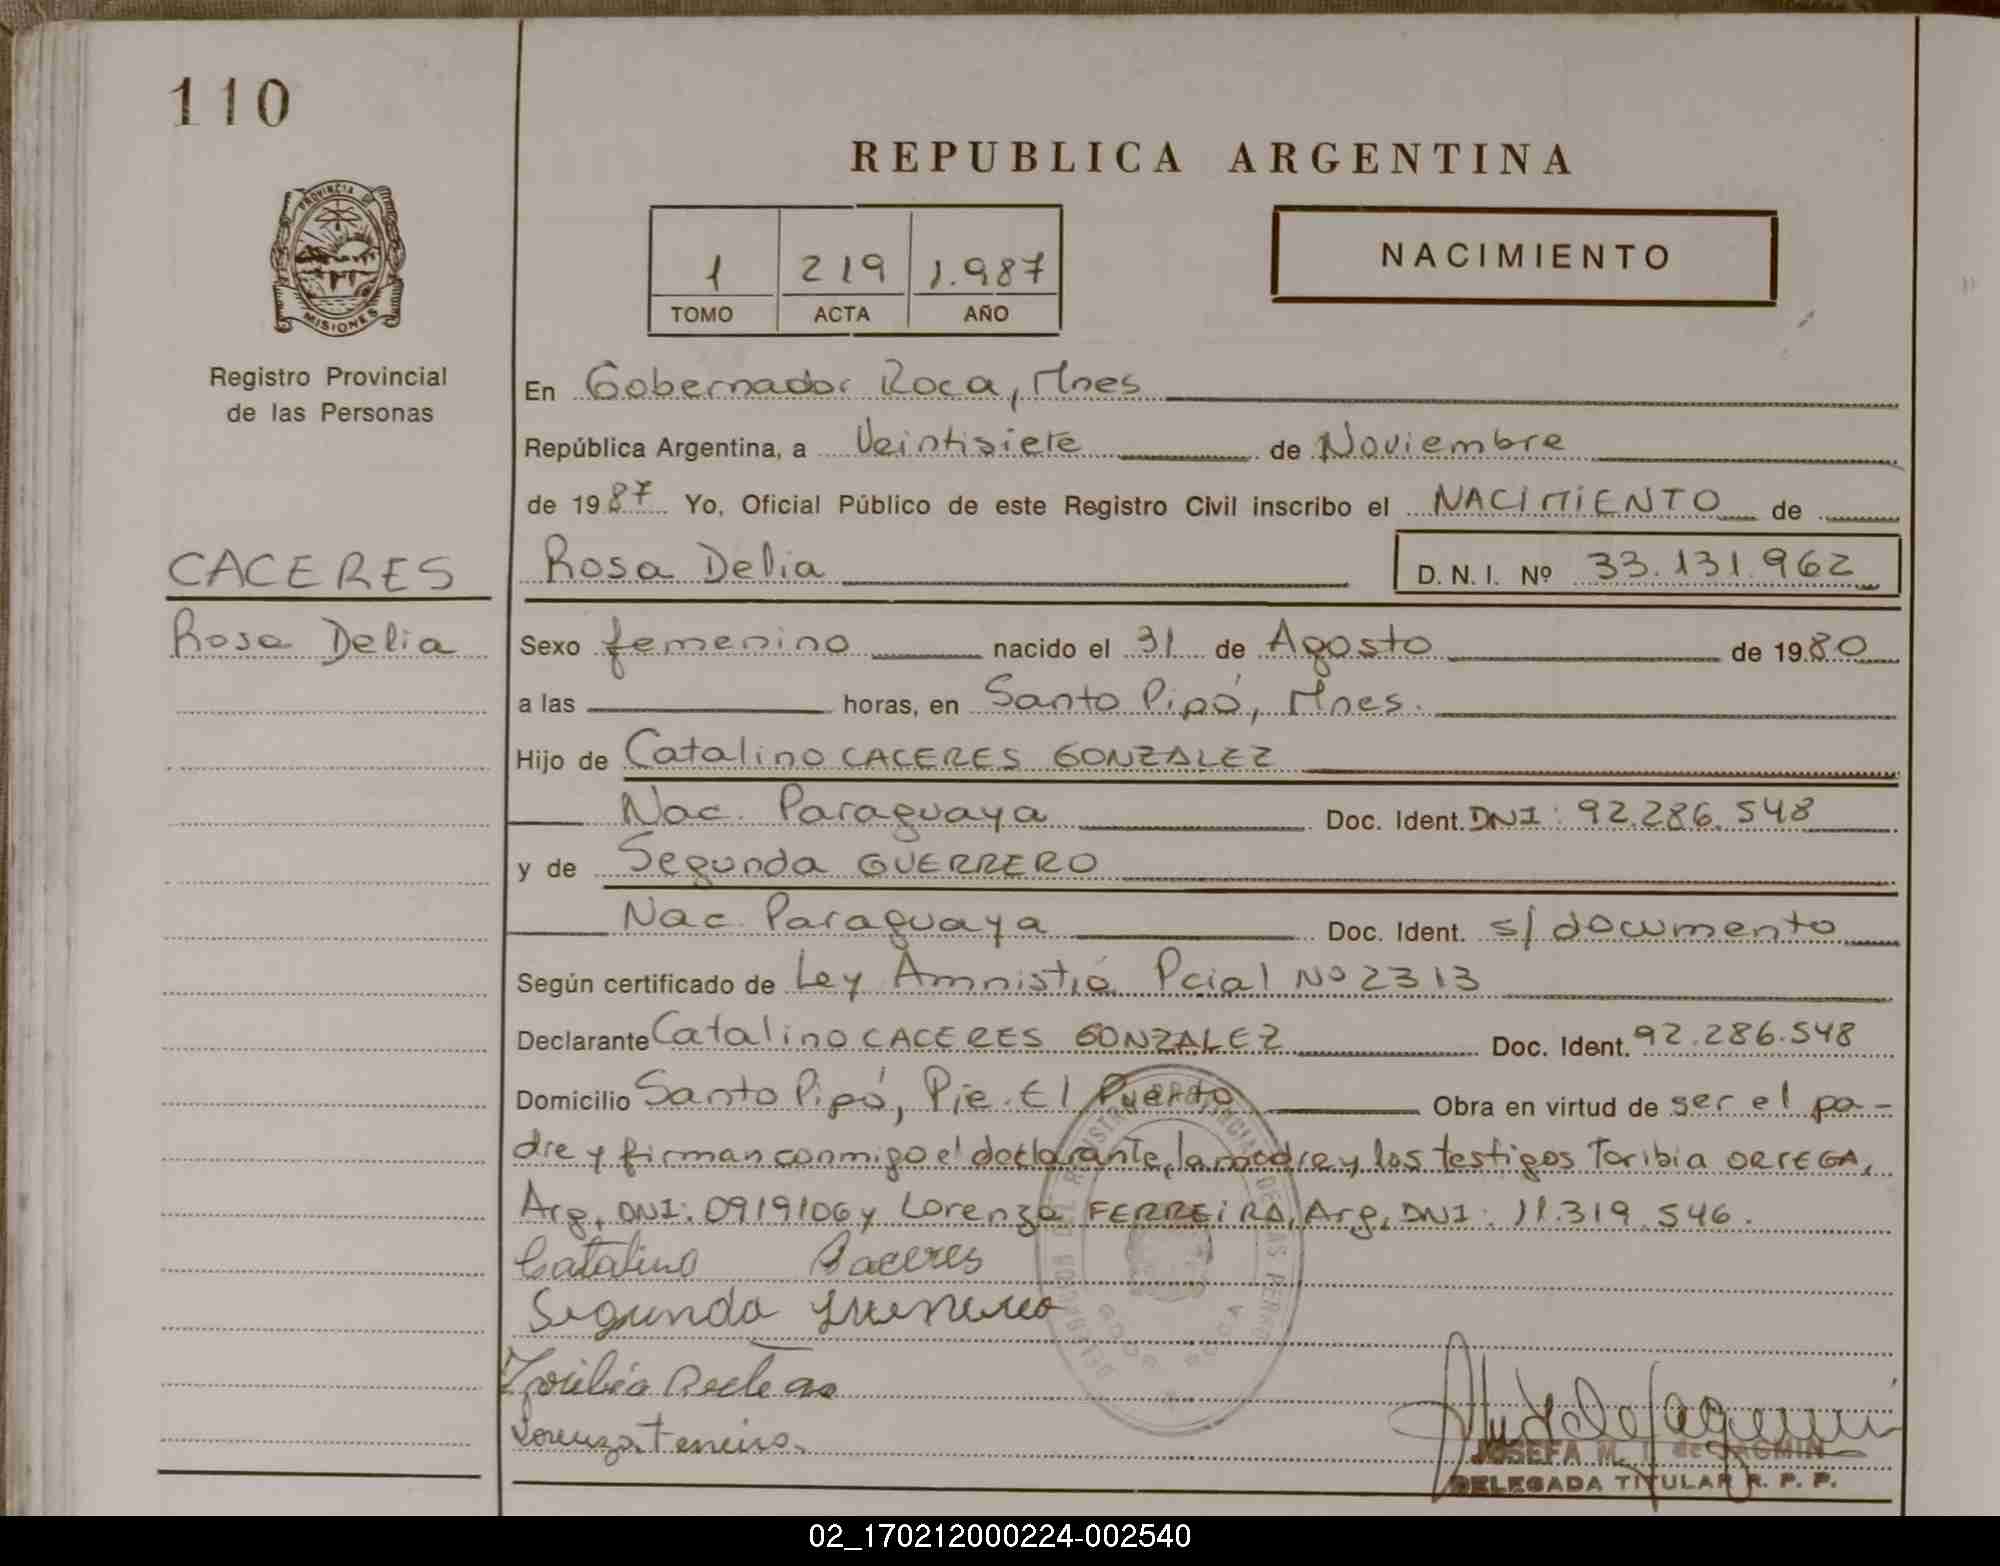 110
REPUBLICA ARGENTINA
PROVINCIA DE
MISIONES
Registro Provincial
de las Personas
1 219 1.987
TOMO ACTA AÑO
NACIMIENTO
En Gobernador Roca, Mnes
República Argentina, a Veintisiete de Noviembre
de 1987 Yo, Oficial Público de este Registro Civil inscribo el NACIMIENTO de
CACERES
Rosa Delia
Rosa Delia D.N.I. Nº 33.131.962
Sexo femenino nacido el 31 de Agosto de 1980
a las horas, en Santo Pipó, Mnes.
Hijo de Catalino CACERES GONZALEZ
Nac. Paraguaya Doc. Ident. DNI: 92.286.548
y de Segunda GUERRERO
Nac. Paraguaya Doc. Ident. s/documento
Según certificado de Ley Amnistía Pcial Nº 2313
Declarante Catalino CACERES GONZALEZ Doc. Ident. 92.286.548
Domicilio Santo Pipó, Pje. El Puerto Obra en virtud de ser el pa-
dre y firman conmigo el declarante, la madre y los testigos Toribia ORTEGA,
Arg, DNI: 0919106 y Lorenza FERREIRA, Arg, DNI: 11.319.546.
Catalino Caceres
Segunda Guerrero
Lorenza Ferreira
JOSEFA M.
DELEGADA TITULAR R. P. P.
02_170212000224-002540